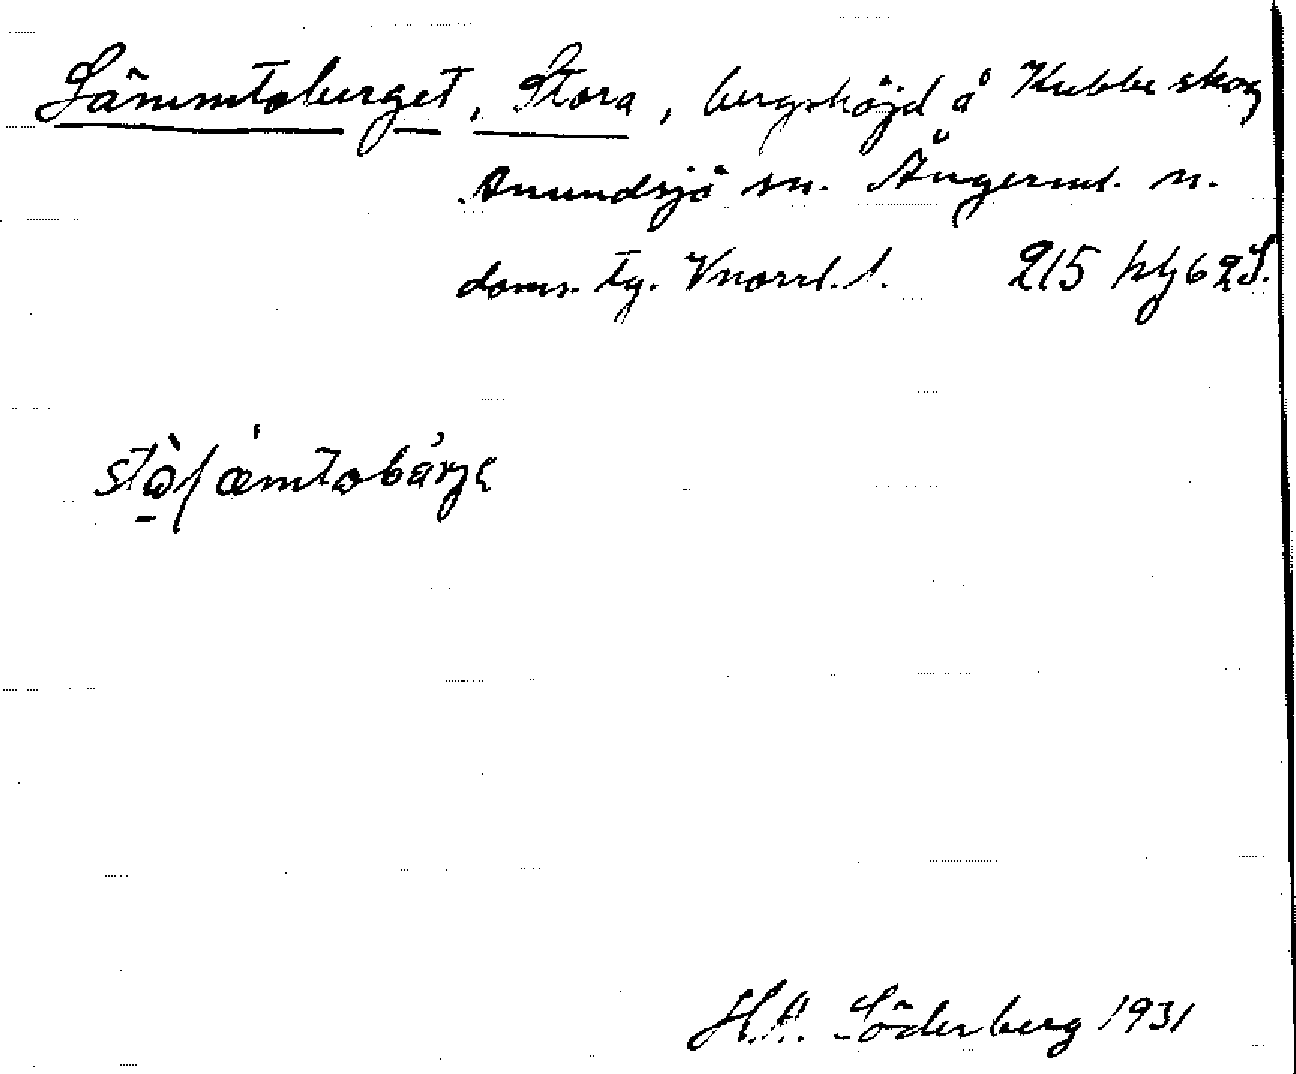 Sämmtoberget, Stora, bergshöjd å Kubbe skog
Anundsjö sn. Ångerml. n.
doms. tg. Vnorrl. l. 215
stò̱ſæmtobárje
H.A. Söderberg 1931